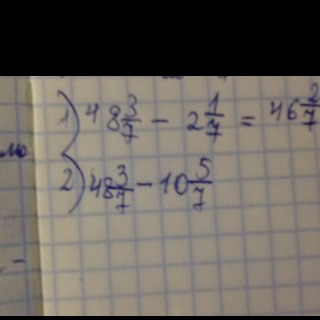 1) 48 3/7 - 2 1/7 = 46 2/7
2) 48 3/7 - 10 5/7